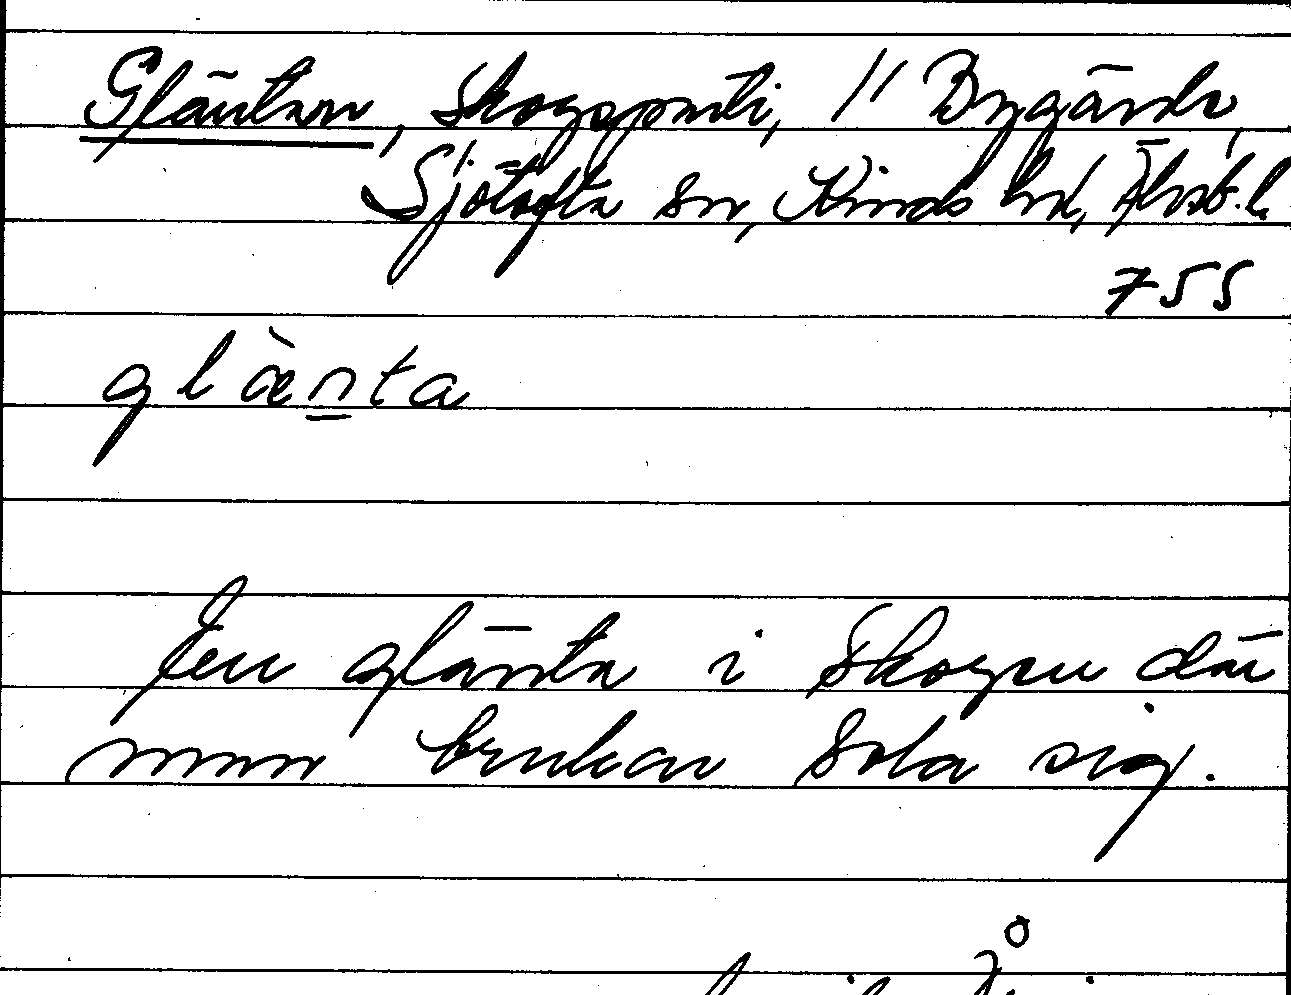 Gläntan, skogsparti, 11 Bygärde,
Sjötofta sn, Kinds hd, Älvsb. l.
755
glæ̀n̲ta
En glänta i skogen där
man brukar sola sig.